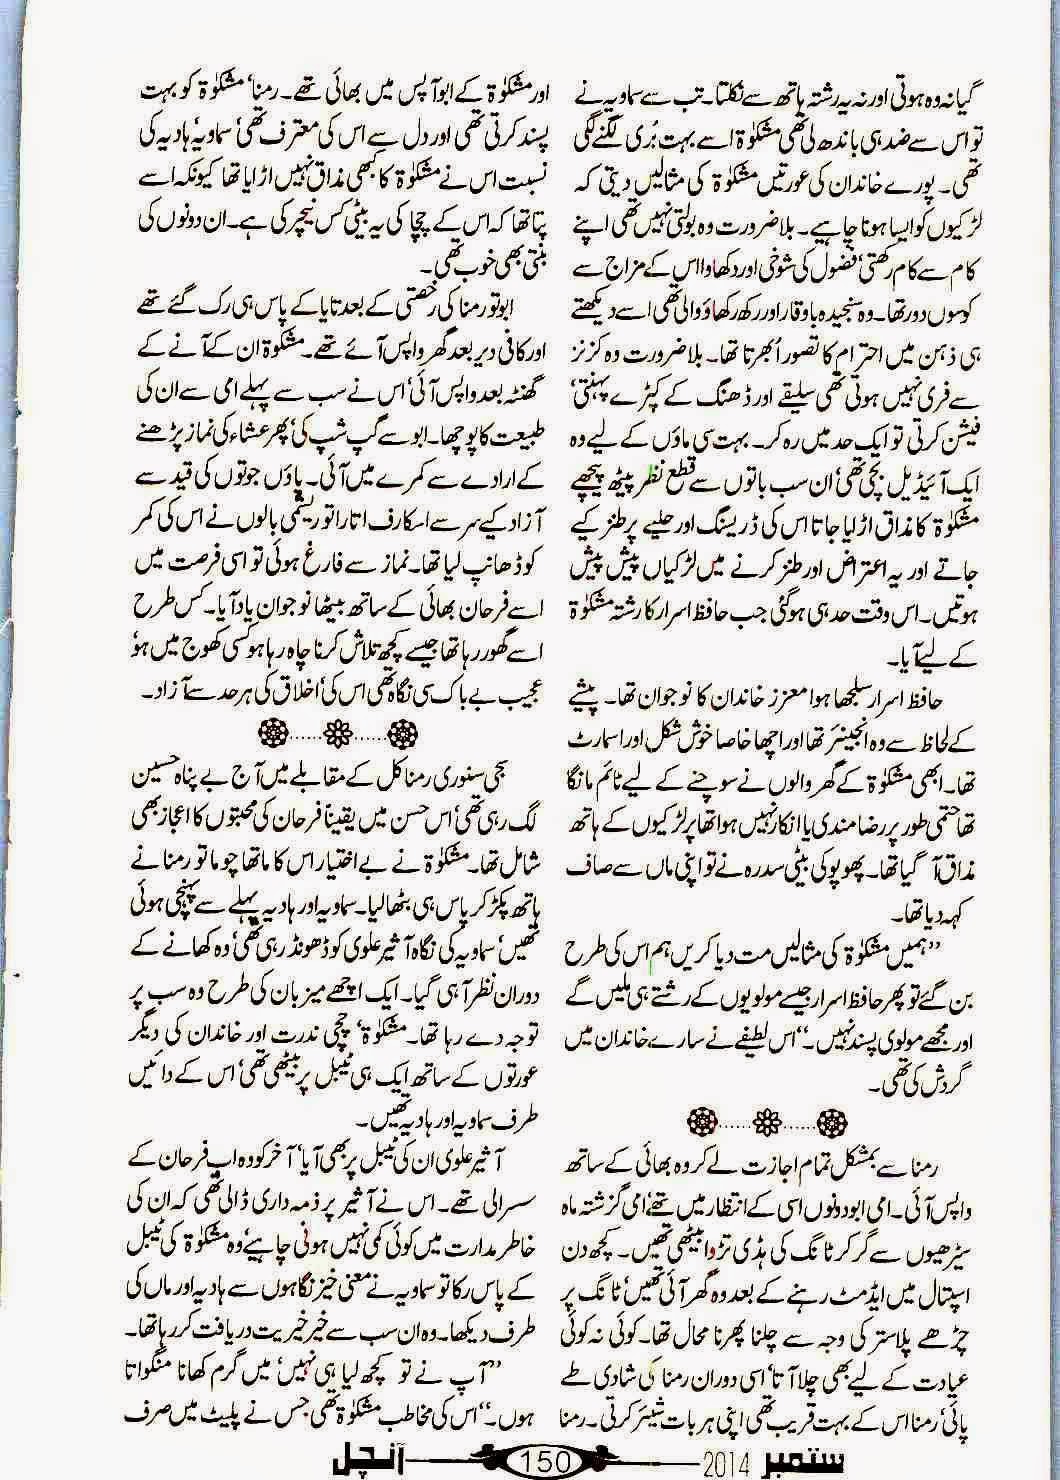 گیا نہ وہ ہوتی اور نہ یہ رشتہ ہاتھ سے نکلتا۔ تب سے سماویہ نے
تو اس سے ضد ہی باندھ لی تھی مشکوٰۃ اسے بہت بُری لگنے لگی
تھی۔ پورے خاندان کی عورتیں مشکوٰۃ کی مثالیں دیتی کہ
لڑکیوں کو ایسا ہونا چاہیے۔ بلاضرورت وہ بولتی نہیں تھی اپنے
کام سے کام رکھتی‘ فضول کی شوخی اور دکھاوا اس کے مزاج سے
کوسوں دور تھا۔ وہ سنجیدہ باوقار اور رکھ رکھاؤ والی تھی اسے دیکھتے
ہی ذہن میں احترام کا تصور اُبھرتا تھا۔ بلاضرورت وہ کزنز
سے فری نہیں ہوتی تھی سلیقے اور ڈھنگ کے کپڑے پہنتی‘
فیشن کرتی تو ایک حد میں رہ کر۔ بہت سی ماؤں کے لیے وہ
ایک آئیڈیل بچی تھی‘ ان سب باتوں سے قطع نظر پیٹھ پیچھے
مشکوٰۃ کا مذاق اڑایا جاتا اس کی ڈریسنگ اور حلیے پر طنز کیے
جاتے اور یہ اعتراض اور طنز کرنے میں لڑکیاں پیش پیش
ہوتیں۔ اس وقت حد ہی ہوگئی جب حافظ اسرار کا رشتہ مشکوٰۃ
کے لیے آیا۔
حافظ اسرار سلجھا ہوا معزز خاندان کا نوجوان تھا۔ پیشے
کے لحاظ سے وہ انجینئر تھا اور اچھا خاصا خوش شکل اور اسمارٹ
تھا۔ ابھی مشکوٰۃ کے گھر والوں نے سوچنے کے لیے ٹائم مانگا
تھا حتمی طور پر رضا مندی یا انکار نہیں ہوا تھا پر لڑکیوں کے ہاتھ
مذاق آ گیا تھا۔ پھوپو کی بیٹی سدرہ نے تو اپنی ماں سے صاف
کہہ دیا تھا۔
”ہمیں مشکوٰۃ کی مثالیں مت دیا کریں ہم اس کی طرح
بن گئے تو پھر حافظ اسرار جیسے مولویوں کے رشتے ہی ملیں گے
اور مجھے مولوی پسند نہیں۔“ اس لطیفے نے سارے خاندان میں
گردش کی تھی۔
رمنا سے بمشکل تمام اجازت لے کر وہ بھائی کے ساتھ
واپس آئی۔ امی ابو دونوں اسی کے انتظار میں تھے‘ امی گزشتہ ماہ
سیڑھیوں سے گر کر ٹانگ کی ہڈی تڑوا بیٹھی تھیں۔ کچھ دن
اسپتال میں ایڈمٹ رہنے کے بعد وہ گھر آئی تھیں‘ ٹانگ پر
چڑھے پلاستر کی وجہ سے چلنا پھرنا محال تھا۔ کوئی نہ کوئی
عیادت کے لیے بھی چلا آتا‘ اسی دوران رمنا کی شادی طے
پائی‘ رمنا اس کے بہت قریب تھی اپنی ہر بات شیئر کرتی۔ رمنا
اور مشکوٰۃ کے ابو آپس میں بھائی تھے۔ رمنا‘ مشکوٰۃ کو بہت
پسند کرتی تھی اور دل سے اس کی معترف تھی‘ سماویہ‘ ہادیہ کی
نسبت اس نے مشکوٰۃ کا کبھی مذاق نہیں اڑایا تھا کیونکہ اسے
پتا تھا کہ اس کے چچا کی یہ بیٹی کس نیچر کی ہے۔ ان دونوں کی
بنتی بھی خوب تھی۔
ابو تو رمنا کی رخصتی کے بعد تایا کے پاس ہی رک گئے تھے
اور کافی دیر بعد گھر واپس آئے تھے۔ مشکوٰۃ ان کے آنے کے
گھنٹہ بعد واپس آئی‘ اس نے سب سے پہلے امی سے ان کی
طبیعت کا پوچھا۔ ابو سے گپ شپ کی‘ پھر عشاء کی نماز پڑھنے
کے ارادے سے کمرے میں آئی۔ پاؤں جوتوں کی قید سے
آزاد کیے سر سے اسکارف اتارا تو ریشمی بالوں نے اس کی کمر
کو ڈھانپ لیا تھا۔ نماز سے فارغ ہوئی تو اسی فرصت میں
اسے فرحان بھائی کے ساتھ بیٹھا نوجوان یاد آیا۔ کس طرح
اسے گھور رہا تھا جیسے کچھ تلاش کرنا چاہ رہا ہو کسی کھوج میں ہو‘
عجیب بے باک سی نگاہ تھی اس کی‘ اخلاق کی ہر حد سے آزاد۔
سجی سنوری رمنا کل کے مقابلے میں آج بے پناہ حسین
لگ رہی تھی‘ اس حسن میں یقیناً فرحان کی محبتوں کا اعجاز بھی
شامل تھا۔ مشکوٰۃ نے بے اختیار اس کا ماتھا چوما تو رمنا نے
ہاتھ پکڑ کر پاس ہی بٹھا لیا۔ سماویہ اور ہادیہ پہلے سے پہنچی ہوئی
تھیں‘ سماویہ کی نگاہ آثیر علوی کو ڈھونڈ رہی تھی‘ وہ کھانے کے
دوران نظر آ ہی گیا۔ ایک اچھے میزبان کی طرح وہ سب پر
توجہ دے رہا تھا۔ مشکوٰۃ‘ چچی ندرت اور خاندان کی دیگر
عورتوں کے ساتھ ایک ہی ٹیبل پر بیٹھی تھی‘ اس کے دائیں
طرف سماویہ اور ہادیہ تھیں۔
آثیر علوی ان کی ٹیبل پر بھی آیا‘ آخر کو وہ اب فرحان کے
سسرالی تھے۔ اس نے آثیر پر ذمہ داری ڈالی تھی کہ ان کی
خاطر مدارت میں کوئی کمی نہیں ہونی چاہیے‘ وہ مشکوٰۃ کی ٹیبل
کے پاس رکا تو سماویہ نے معنی خیز نگاہوں سے ہادیہ اور ماں کی
طرف دیکھا۔ وہ ان سب سے خیر خیریت دریافت کر رہا تھا۔
”آپ نے تو کچھ لیا ہی نہیں‘ میں گرم کھانا منگواتا
ہوں۔“ اس کی مخاطب مشکوٰۃ تھی جس نے پلیٹ میں صرف
ستمبر 2014 150 آنچل